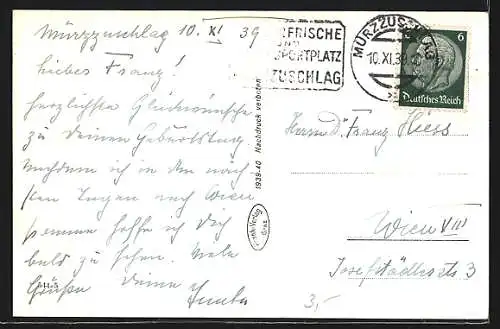 Mürzzuschlag 10. XI 39
Lieber Franz!
Herzlichste Glückwünsche
zu Deinem Geburtstag.
Nachdem ich in den näch-
sten Tagen nach Wien
komme hoffe ich Dich
bald zu sehen. Viele
Grüße Deine
RFRISCHE
UND
SPORTPLATZ
ZUSCHLAG
MÜRZZUSCHLAG
10.XI.39
6
Deutsches Reich
1939-40 Nachdruck verboten
Verlag
Graz
Herrn Franz Hiess
Wien VIII
Josefstädterstr 3
3,-